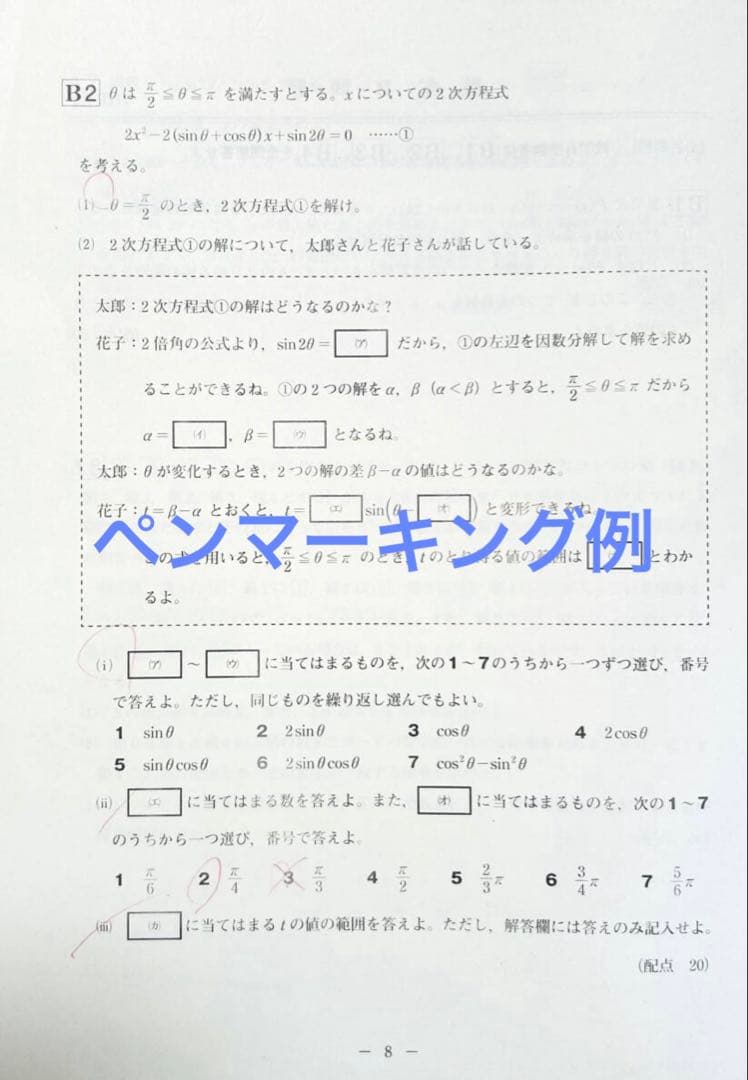 B2 θは π/2 ≦θ≦π を満たすとする。xについての2次方程式
2x²−2(sinθ+cosθ)x+sin2θ=0 ……①
を考える。
(1) θ=π/2 のとき，2次方程式①を解け。
(2) 2次方程式①の解について，太郎さんと花子さんが話している。
太郎：2次方程式①の解はどうなるのかな？
花子：2倍角の公式より，sin2θ= (ア) だから，①の左辺を因数分解して解を求め
ることができるね。①の2つの解をα，β（α<β）とすると，π/2 ≦θ≦π だから
α= (イ) ，β= (ウ) となるね。
太郎：θが変化するとき，2つの解の差β−αの値はどうなるのかな。
花子：t=β−α とおくと，t= (エ) sin(θ− (オ) ) と変形できるね
ペンマーキング例
の式を用いると，π/2 ≦θ≦π のとき，tのとり得る値の範囲は とわか
るよ。
(i) (ア) ～ (ウ) に当てはまるものを，次の1～7のうちから一つずつ選び，番号
で答えよ。ただし，同じものを繰り返し選んでもよい。
1 sinθ 2 2sinθ 3 cosθ 4 2cosθ
5 sinθcosθ 6 2sinθcosθ 7 cos²θ−sin²θ
(ii) (エ) に当てはまる数を答えよ。また， (オ) に当てはまるものを，次の1～7
のうちから一つ選び，番号で答えよ。
1 π/6 2 π/4 3 π/3 4 π/2 5 2/3π 6 3/4π 7 5/6π
(iii) (カ) に当てはまるtの値の範囲を答えよ。ただし，解答欄には答えのみ記入せよ。
(配点 20)
− 8 −